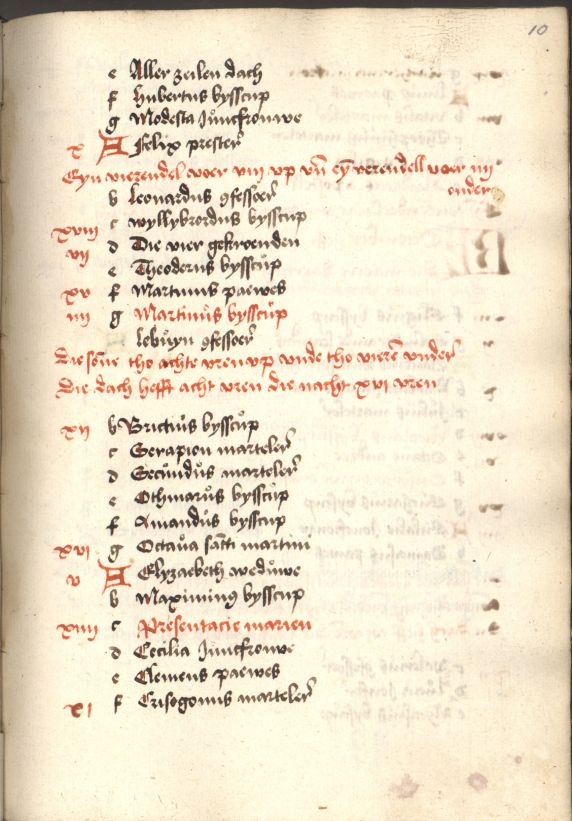 10
e Aller zeilen dach
f Hubertus bysscup
g Modesta iůncfrouwe
x A Felix prester
Eyn vierendel voer viii vp vñ eÿ verendell voer iiii
onder
b Leonardus ɔfessoer
xviii c wyllybrordus bysscup
vii d Die vier gekroenden
e Theoderus bysscůp
xv f Martinus paewes
iiii g Martinůs bysscůp
Lebůyn ɔfessoer
Die sõne tho achte vren vp vnde tho vierẽ vnder
Die dach hefft acht vren die nacht xvi vren
xii b Brictiůs bysscůp
c Serapion marteler
d Secůndůs marteler
e Othmarůs bysscůp
f Amandůs bysscůp
xvi g Octaůa sãcti martini
v A Elyzaebeth wedůwe
b Maximinꝰ bysscup
xiii c Presentacie marien
d Cecilia iůncfrouwe
e Clemens paewes
xi f Crisogonus marteler